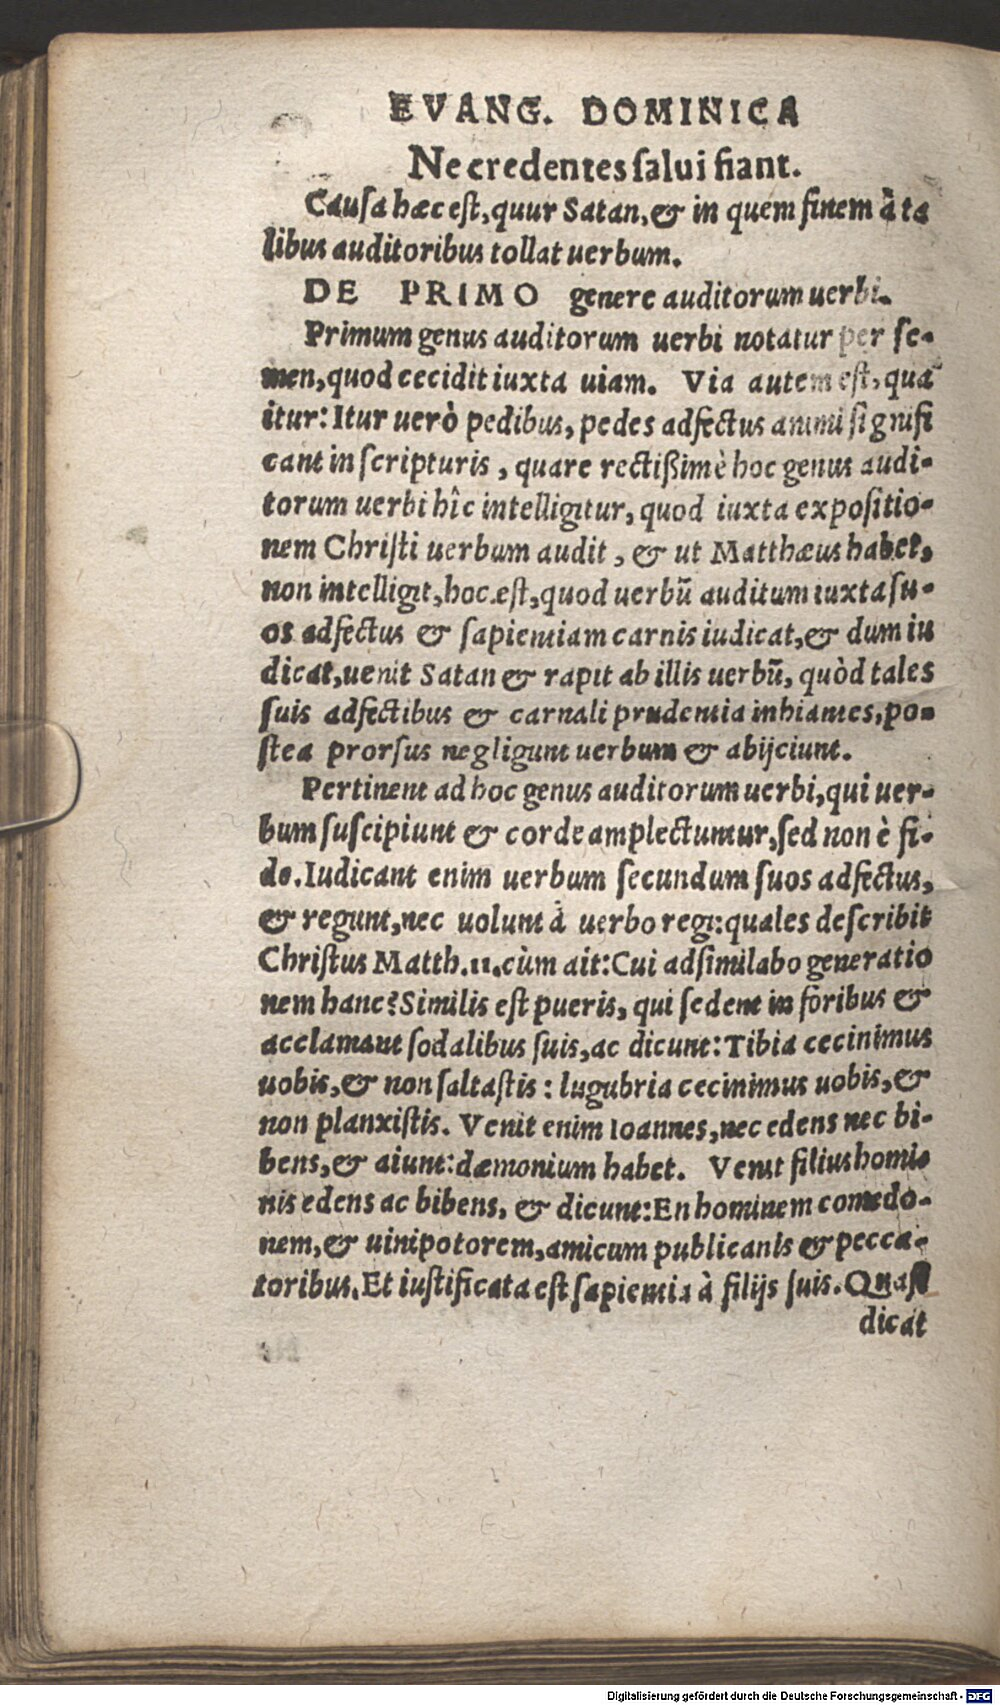 EVANG. DOMINICA
Ne credentes salui fiant.
Causa hæc est, quur Satan, & in quem finem à ta
libus auditoribus tollat uerbum.
DE PRIMO genere auditorum uerbi.
Primum genus auditorum uerbi notatur per se-
men, quod cecidit iuxta uiam. Via autem est, qua
itur: Itur uerò pedibus, pedes adfectus animi signifi
cant in scripturis, quare rectißimè hoc genus audi-
torum uerbi hîc intelligitur, quod iuxta expositio-
nem Christi uerbum audit, & ut Matthæus habet,
non intelligit, hoc est, quod uerbũ auditum iuxta su-
os adfectus & sapientiam carnis iudicat, & dum iu
dicat, uenit Satan & rapit ab illis uerbũ, quòd tales
suis adfectibus & carnali prudentia inhiantes, po-
stea prorsus negligunt uerbum & abijciunt.
Pertinent ad hoc genus auditorum uerbi, qui uer-
bum suscipiunt & corde amplectuntur, sed non è fi-
de. Iudicant enim uerbum secundum suos adfectus,
& regunt, nec uolunt à uerbo regi: quales describit
Christus Matth. 11. cùm ait: Cui adsimilabo generatio
nem hanc? Similis est pueris, qui sedent in foribus &
acclamant sodalibus suis, ac dicunt: Tibia cecinimus
uobis, & non saltastis: lugubria cecinimus uobis, &
non planxistis. Venit enim Ioannes, nec edens nec bi-
bens, & aiunt: dæmonium habet. Venit filius homi-
nis edens ac bibens, & dicunt: En hominem comedo-
nem, & uinipotorem, amicum publicanis & pecca-
toribus. Et iustificata est sapientia à filijs suis. Quasi
dicat
Digitalisierung gefördert durch die Deutsche Forschungsgemeinschaft - DFG